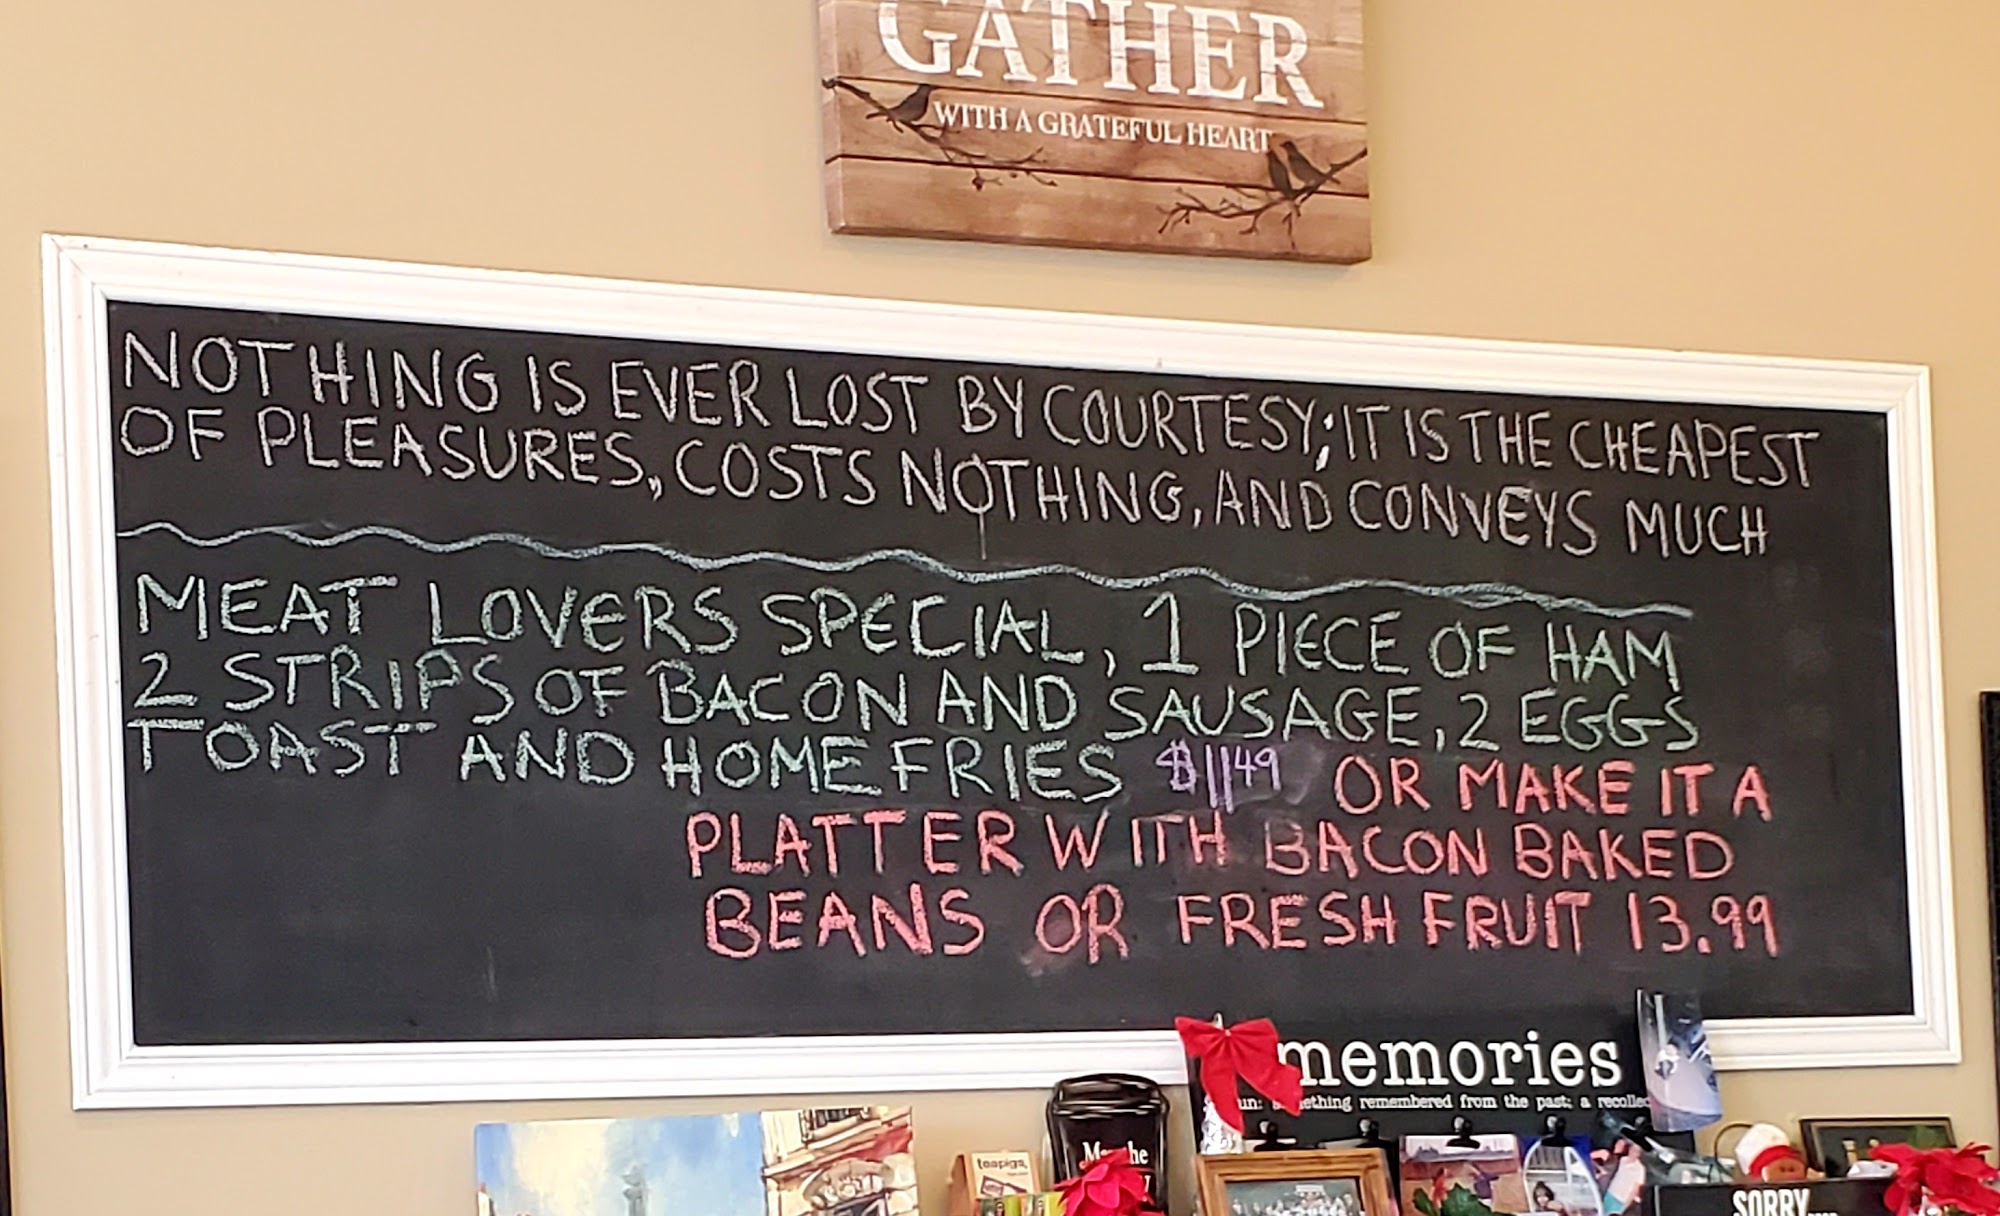 GATHER
WITH A GRATEFUL HEART
NOTHING IS EVER LOST BY COURTESY; IT IS THE CHEAPEST
OF PLEASURES, COSTS NOTHING, AND CONVEYS MUCH
MEAT LOVERS SPECIAL, 1 PIECE OF HAM
2 STRIPS OF BACON AND SAUSAGE, 2 EGGS
TOAST AND HOME FRIES $11.49 OR MAKE IT A
PLATTER WITH BACON BAKED
BEANS OR FRESH FRUIT 13.99
memories
remembered from the past; a
teapigs
the
SORRY....